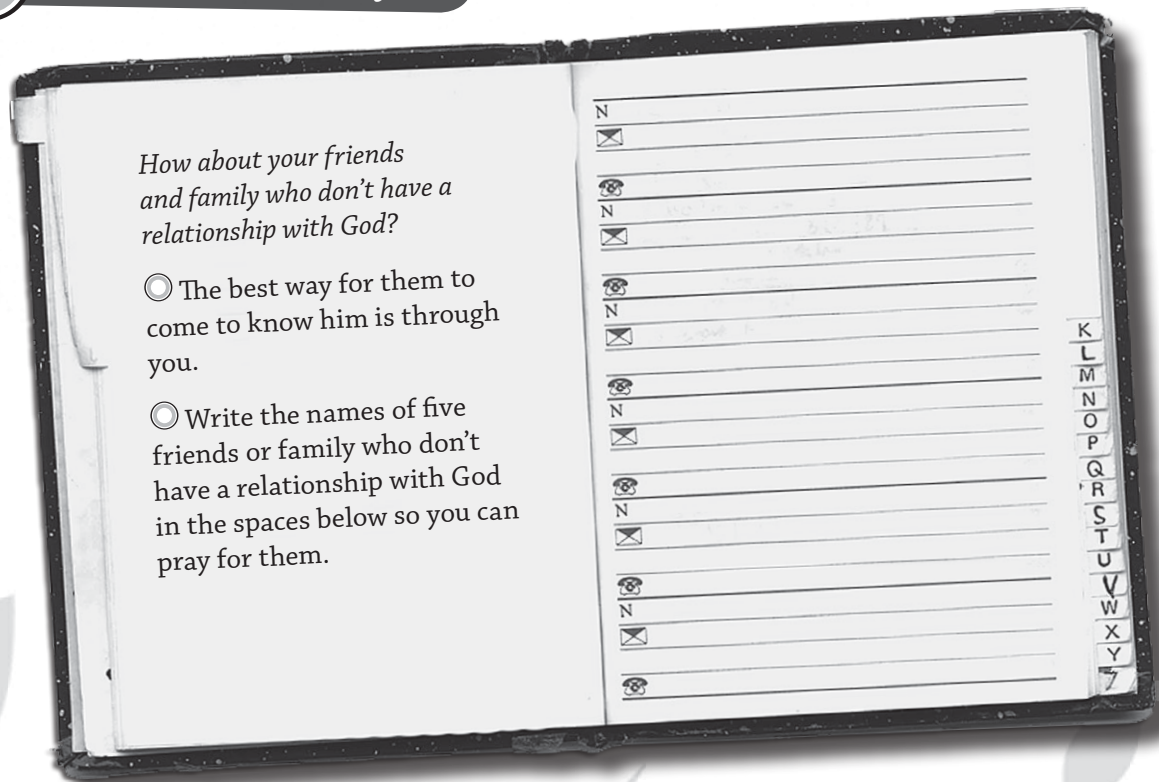 How about your friends
and family who don't have a
relationship with God?
The best way for them to
come to know him is through
you.
Write the names of five
friends or family who don't
have a relationship with God
in the spaces below so you can
pray for them.
N
N
N
N
N
N
K
L
M
N
O
P
Q
R
S
T
U
V
W
X
Y
Z